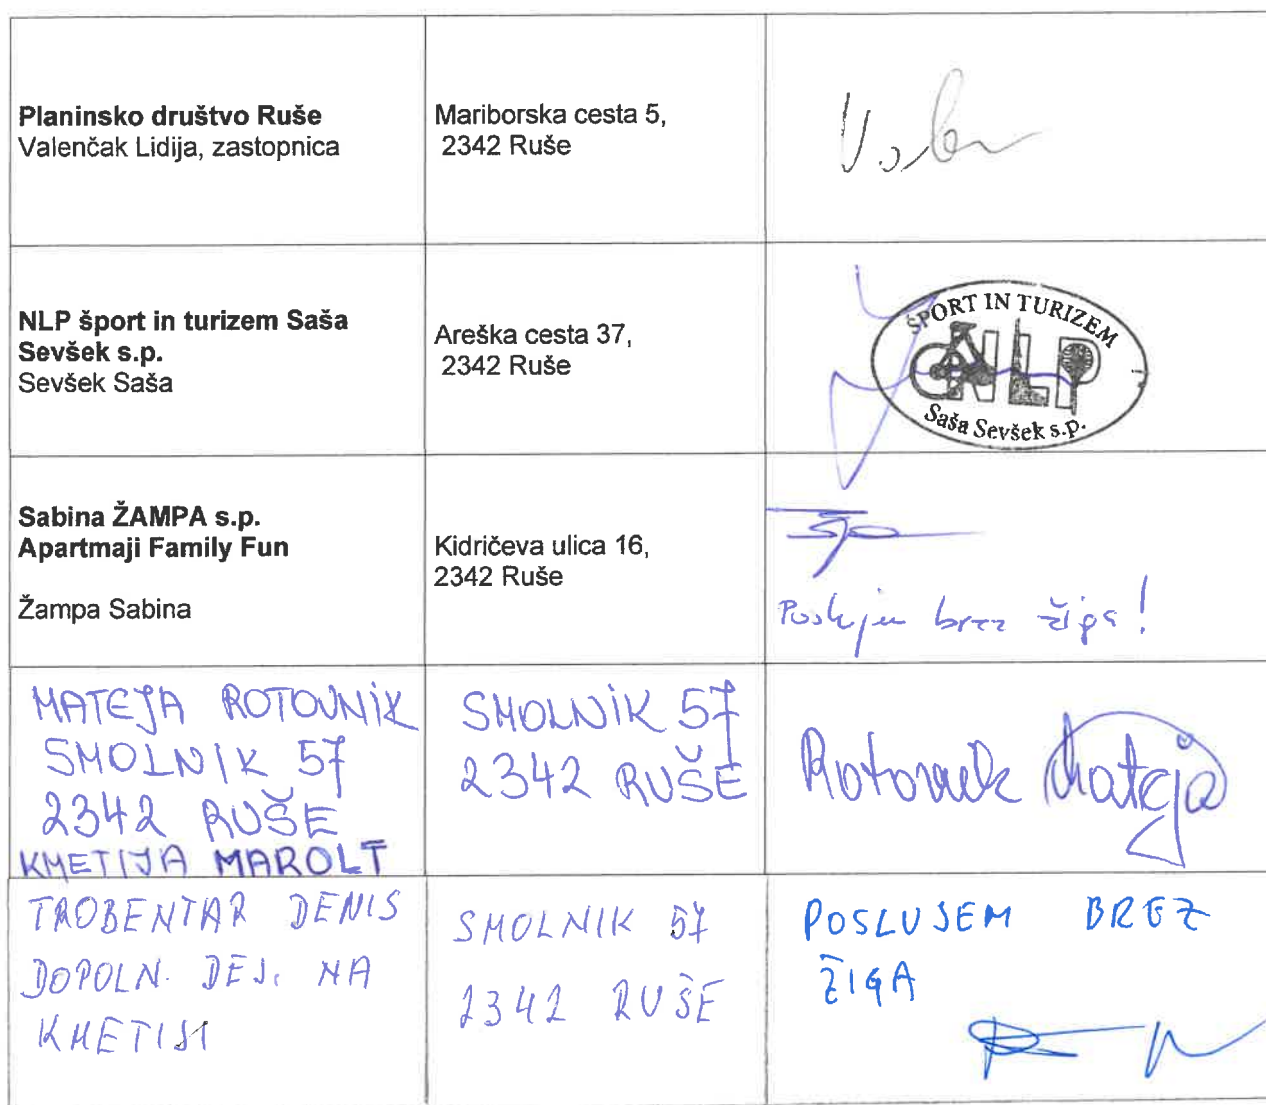 Planinsko društvo Ruše
Valenčak Lidija, zastopnica
Mariborska cesta 5,
2342 Ruše
NLP šport in turizem Saša
Sevšek s.p.
Sevšek Saša
Areška cesta 37,
2342 Ruše
ŠPORT IN TURIZEM
NLP
Saša Sevšek s.p.
Sabina ŽAMPA s.p.
Apartmaji Family Fun
Žampa Sabina
Kidričeva ulica 16,
2342 Ruše
Poslujem brez žiga!
MATEJA ROTOVNIK
SMOLNIK 57
2342 RUŠE
KMETIJA MAROLT
SMOLNIK 57
2342 RUŠE
Rotovnik Mateja
TROBENTAR DENIS
DOPOLN. DEJ. NA
KMETIJI
SMOLNIK 57
2342 RUŠE
POSLUJEM BREZ
ŽIGA